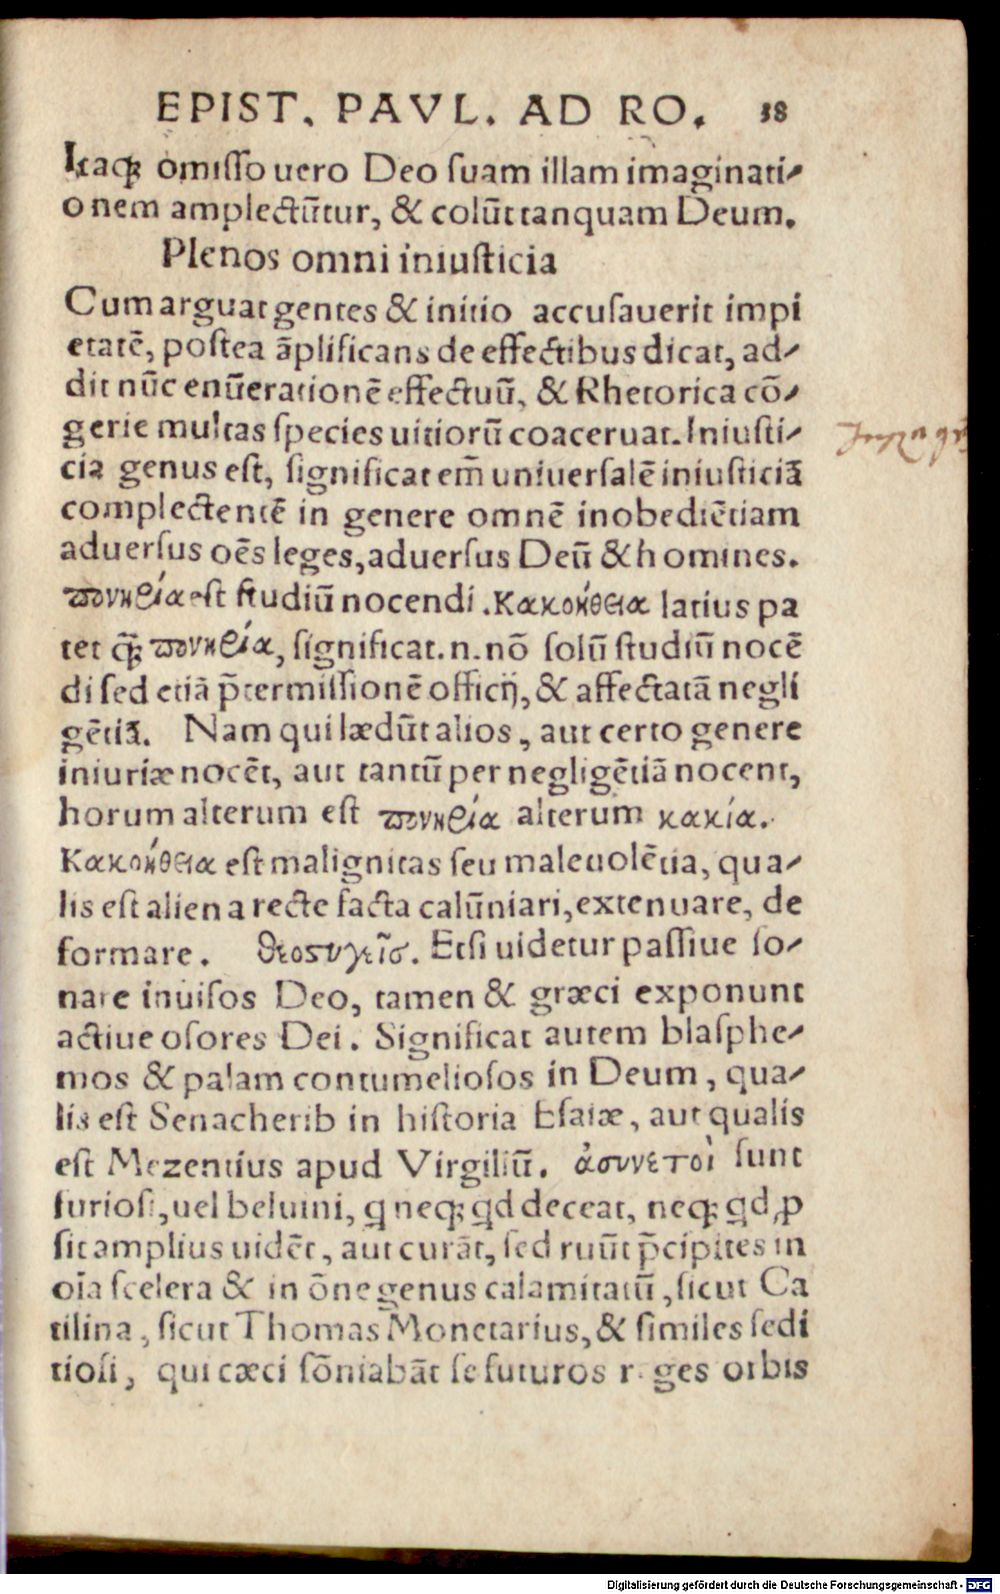 EPIST. PAVL. AD RO. 38
Itaq; omisso uero Deo suam illam imaginati-
onem amplectūtur, & colūt tanquam Deum.
Plenos omni iniusticia
Cum arguat gentes & initio accusauerit impi
etatē, postea āplificans de effectibus dicat, ad-
dit nūc enūerationē effectuū, & Rhetorica cō-
gerie multas species uitiorū coaceruat. Iniusti-
cia genus est, significat em̄ uniuersalē iniusticiā
complectentē in genere omnē inobediētiam
aduersus oēs leges, aduersus Deū & homines.
πονηρία est studiū nocendi. Κακοήθεια latius pa
tet q̄; πονηρία, significat .n. nō solū studiū nocē
di sed etiā p̄termissionē officij, & affectatā negli
gētiā. Nam qui lædūt alios, aut certo genere
iniuriæ nocēt, aut tantū per negligētiā nocent,
horum alterum est πονηρία alterum κακία.
Κακοήθεια est malignitas seu maleuolētia, qua-
lis est aliena recte facta calūniari, extenuare, de
formare. θεοστυγεῖσ. Etsi uidetur passiue so-
nare inuisos Deo, tamen & græci exponunt
actiue osores Dei. Significat autem blasphe-
mos & palam contumeliosos in Deum, qua-
lis est Senacherib in historia Esaiæ, aut qualis
est Mezentius apud Virgiliū. ἀσυνετοὶ sunt
furiosi, uel beluini, q neq; qd deceat, neq; qd ꝓ
sit amplius uidēt, aut curāt, sed ruūt p̄cipites in
oīa scelera & in ōne genus calamitatū, sicut Ca
tilina, sicut Thomas Monetarius, & similes sedi
tiosi, qui cæci sōniabāt se futuros reges orbis
Digitalisierung gefördert durch die Deutsche Forschungsgemeinschaft - DFG